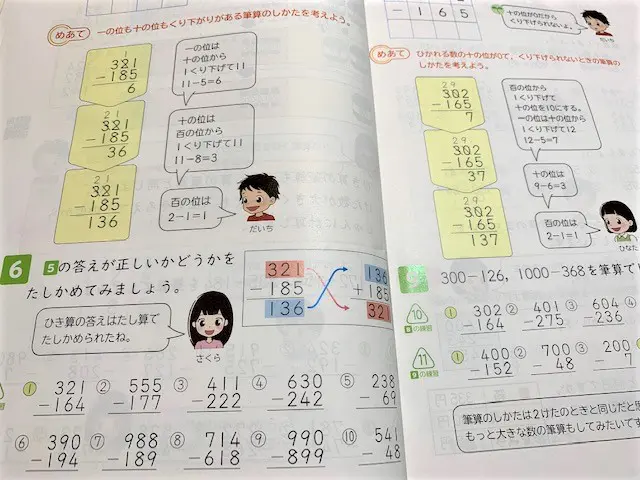 めあて 一の位も十の位もくり下がりがある筆算のしかたを考えよう。
1
321
-185
6
一の位は
十の位から
1くり下げて11
11-5=6
21
321
-185
36
十の位は
百の位から
1くり下げて11
11-8=3
21
321
-185
136
百の位は
2-1=1
だいち
6 5の答えが正しいかどうかを
たしかめてみましょう。
321
-185
136
136
+185
321
ひき算の答えはたし算で
たしかめられたね。
さくら
① 321
-164
② 555
-177
③ 411
-222
④ 630
-242
⑤ 238
-69
⑥ 390
-194
⑦ 988
-189
⑧ 714
-618
⑨ 990
-899
⑩ 541
-48
-165
十の位が0だから
くり下げられないよ。
だいち
めあて ひかれる数の十の位が0で、くり下げられないときの筆算の
しかたを考えよう。
29
302
-165
7
百の位から
1くり下げて
十の位を10にする。
一の位は十の位から
1くり下げて12
12-5=7
29
302
-165
37
十の位は
9-6=3
29
302
-165
137
百の位は
2-1=1
ひなた
300-126, 1000-368を筆算で
10
の練習
① 302
-164
② 401
-275
③ 604
-236
11
の練習
① 400
-152
② 700
-48
③ 200
筆算のしかたは2けたのときと同じだと思
もっと大きな数の筆算もしてみたいです